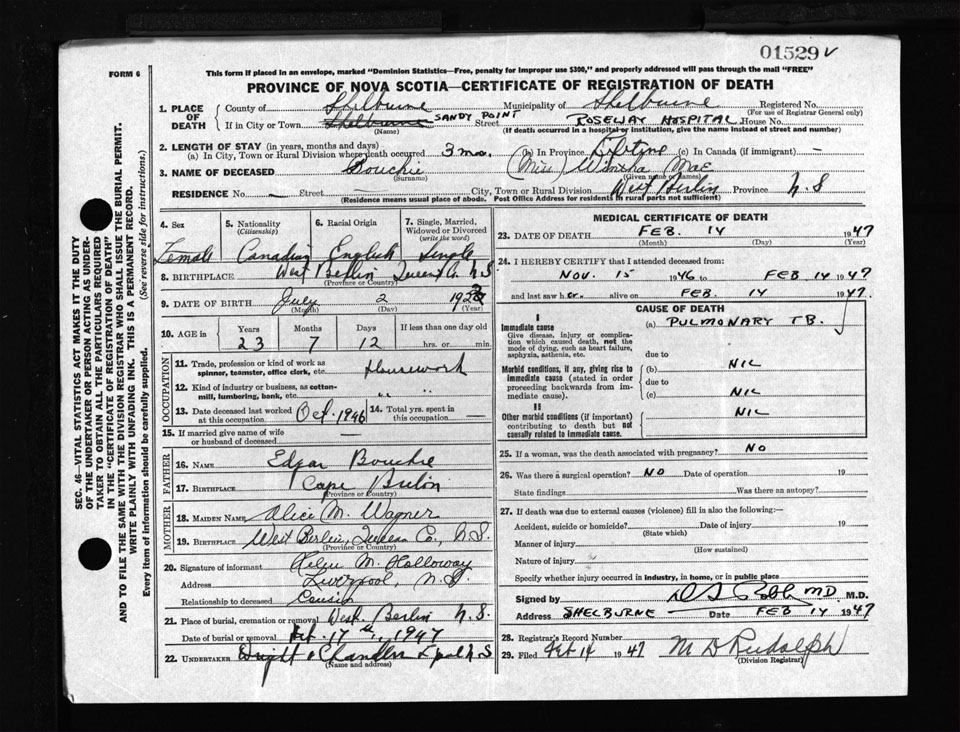 01529 V
FORM 6
This form if placed in an envelope, marked "Dominion Statistics—Free, penalty for improper use $300," and properly addressed will pass through the mail "FREE"
PROVINCE OF NOVA SCOTIA—CERTIFICATE OF REGISTRATION OF DEATH
1. PLACE OF DEATH County of Shelburne Municipality of Shelburne Registered No.
(For use of Registrar General only)
If in City or Town Shelburne SANDY POINT Street ROSEWAY HOSPITAL House No.
(Name) (If death occurred in a hospital or institution, give the name instead of street and number)
2. LENGTH OF STAY (in years, months and days)
(a) In City, Town or Rural Division where death occurred 3 mo. (b) In Province Lifetime (c) In Canada (if immigrant) —
3. NAME OF DECEASED Bouchie (Miss) Mae
(Surname) (Given name or names)
RESIDENCE No. — Street — City, Town or Rural Division West Berlin Province N.S
(Residence means usual place of abode. Post Office Address for residents in rural parts not sufficient)
4. Sex 5. Nationality (Citizenship) 6. Racial Origin 7. Single, Married, Widowed or Divorced (write the word)
Female Canadian English Single
8. BIRTHPLACE West Berlin Queens Co. N.S
(Province or Country)
9. DATE OF BIRTH July 2 1923
(Month) (Day) (Year)
10. AGE in Years Months Days If less than one day old
23 7 12 hrs. or min.
OCCUPATION
11. Trade, profession or kind of work as spinner, teamster, office clerk, etc. Housework
12. Kind of industry or business, as cotton-mill, lumbering, bank, etc. " "
13. Date deceased last worked at this occupation Oct. 1946 14. Total yrs. spent in this occupation —
15. If married give name of wife or husband of deceased —
FATHER
16. NAME Edgar Bouchie
17. BIRTHPLACE Cape Breton
(Province or Country)
MOTHER
18. MAIDEN NAME Alice M. Wagner
19. BIRTHPLACE West Berlin, Queens Co., N.S.
(Province or Country)
20. Signature of informant Helen M. Holloway
Address Liverpool, N.S.
Relationship to deceased Cousin
21. Place of burial, cremation or removal West Berlin N.S.
Date of burial or removal Feb. 17th, 1947
22. UNDERTAKER Chandler L'pool N.S
(Name and address)
MEDICAL CERTIFICATE OF DEATH
23. DATE OF DEATH FEB. 14 1947
(Month) (Day) (Year)
24. I HEREBY CERTIFY that I attended deceased from:
NOV. 15 1946 to FEB 14 1947
and last saw her alive on FEB. 14 1947.
CAUSE OF DEATH
I
Immediate cause (a) PULMONARY TB.
Give disease, injury or complication which caused death, not the mode of dying, such as heart failure, asphyxia, asthenia, etc.
due to
Morbid conditions, if any, giving rise to immediate cause (stated in order proceeding backwards from immediate).
(b) NIL
due to
(c) NIL
II
Other morbid conditions (if important) contributing to death but not causally related to immediate cause.
NIL
25. If a woman, was the death associated with pregnancy? NO
26. Was there a surgical operation? NO Date of operation 19
State findings Was there an autopsy?
27. If death was due to external causes (violence) fill in also the following:—
Accident, suicide or homicide? Date of injury 19
(State which)
Manner of injury
(How sustained)
Nature of injury
Specify whether injury occurred in industry, in home, or in public place
Signed by MD M.D.
Address SHELBURNE Date FEB 14 1947
28. Registrar's Record Number
29. Filed Feb 14 1947 M D Rudolph
(Division Registrar)
SEC. 46—VITAL STATISTICS ACT MAKES IT THE DUTY
OF THE UNDERTAKER OR PERSON ACTING AS UNDER-
TAKER TO OBTAIN ALL THE PARTICULARS REQUIRED
IN THE "CERTIFICATE OF REGISTRATION OF DEATH"
AND TO FILE THE SAME WITH THE DIVISION REGISTRAR WHO SHALL ISSUE THE BURIAL PERMIT.
WRITE PLAINLY WITH UNFADING INK. THIS IS A PERMANENT RECORD.
Every item of information should be carefully supplied. (See reverse side for instructions.)